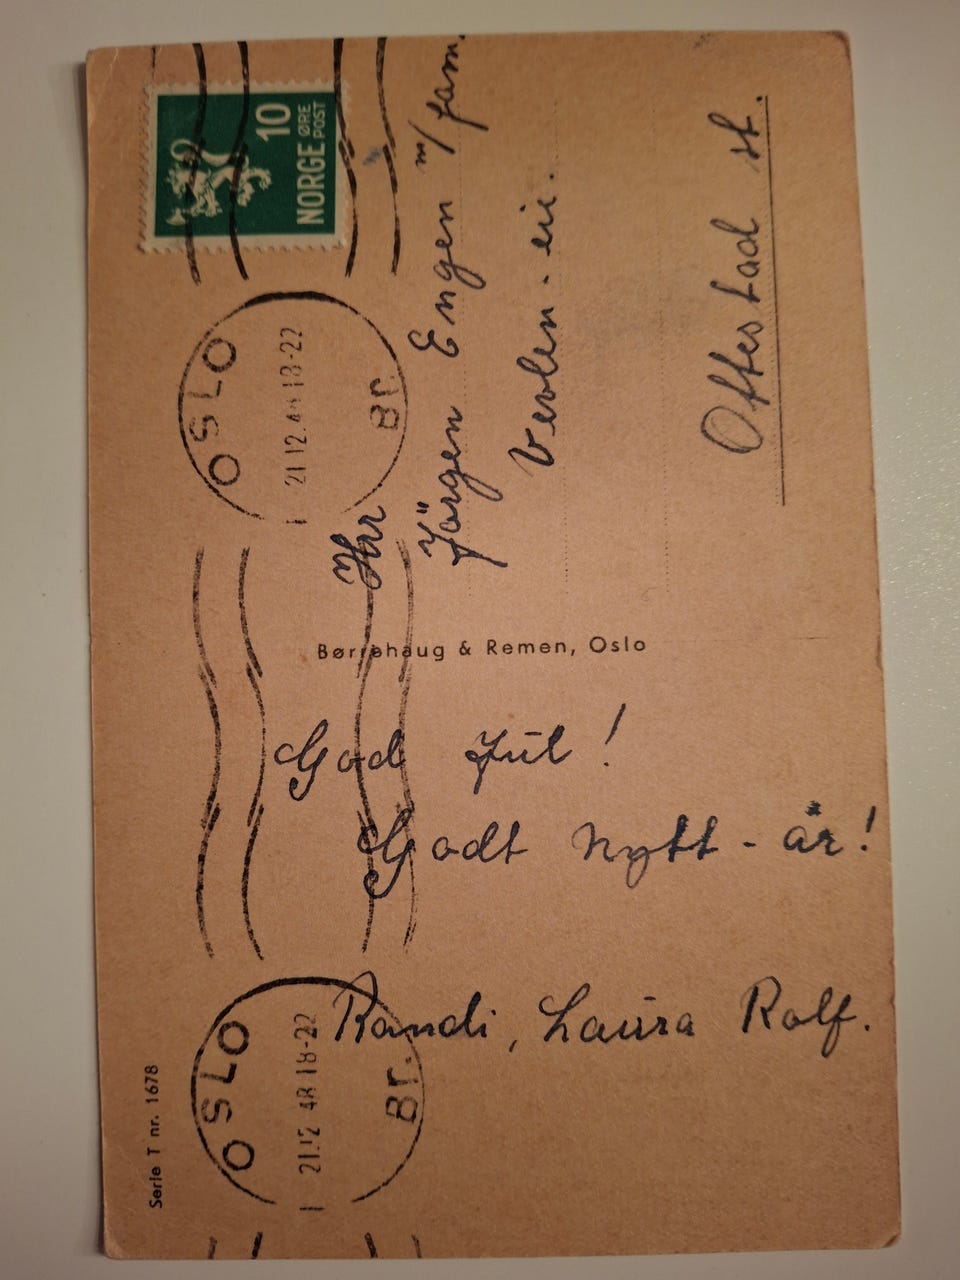 God Jul!
Godt nytt-år!
Randi, Laura Rolf.
Børrehaug & Remen, Oslo
Serie T nr. 1678
NORGE 10 ØRE
POST
OSLO
21.12.48 18-22
Br.
OSLO
21.12.48 18-22
Br.
Hrr
Jörgen Engen m/fam.
Oftestad st.